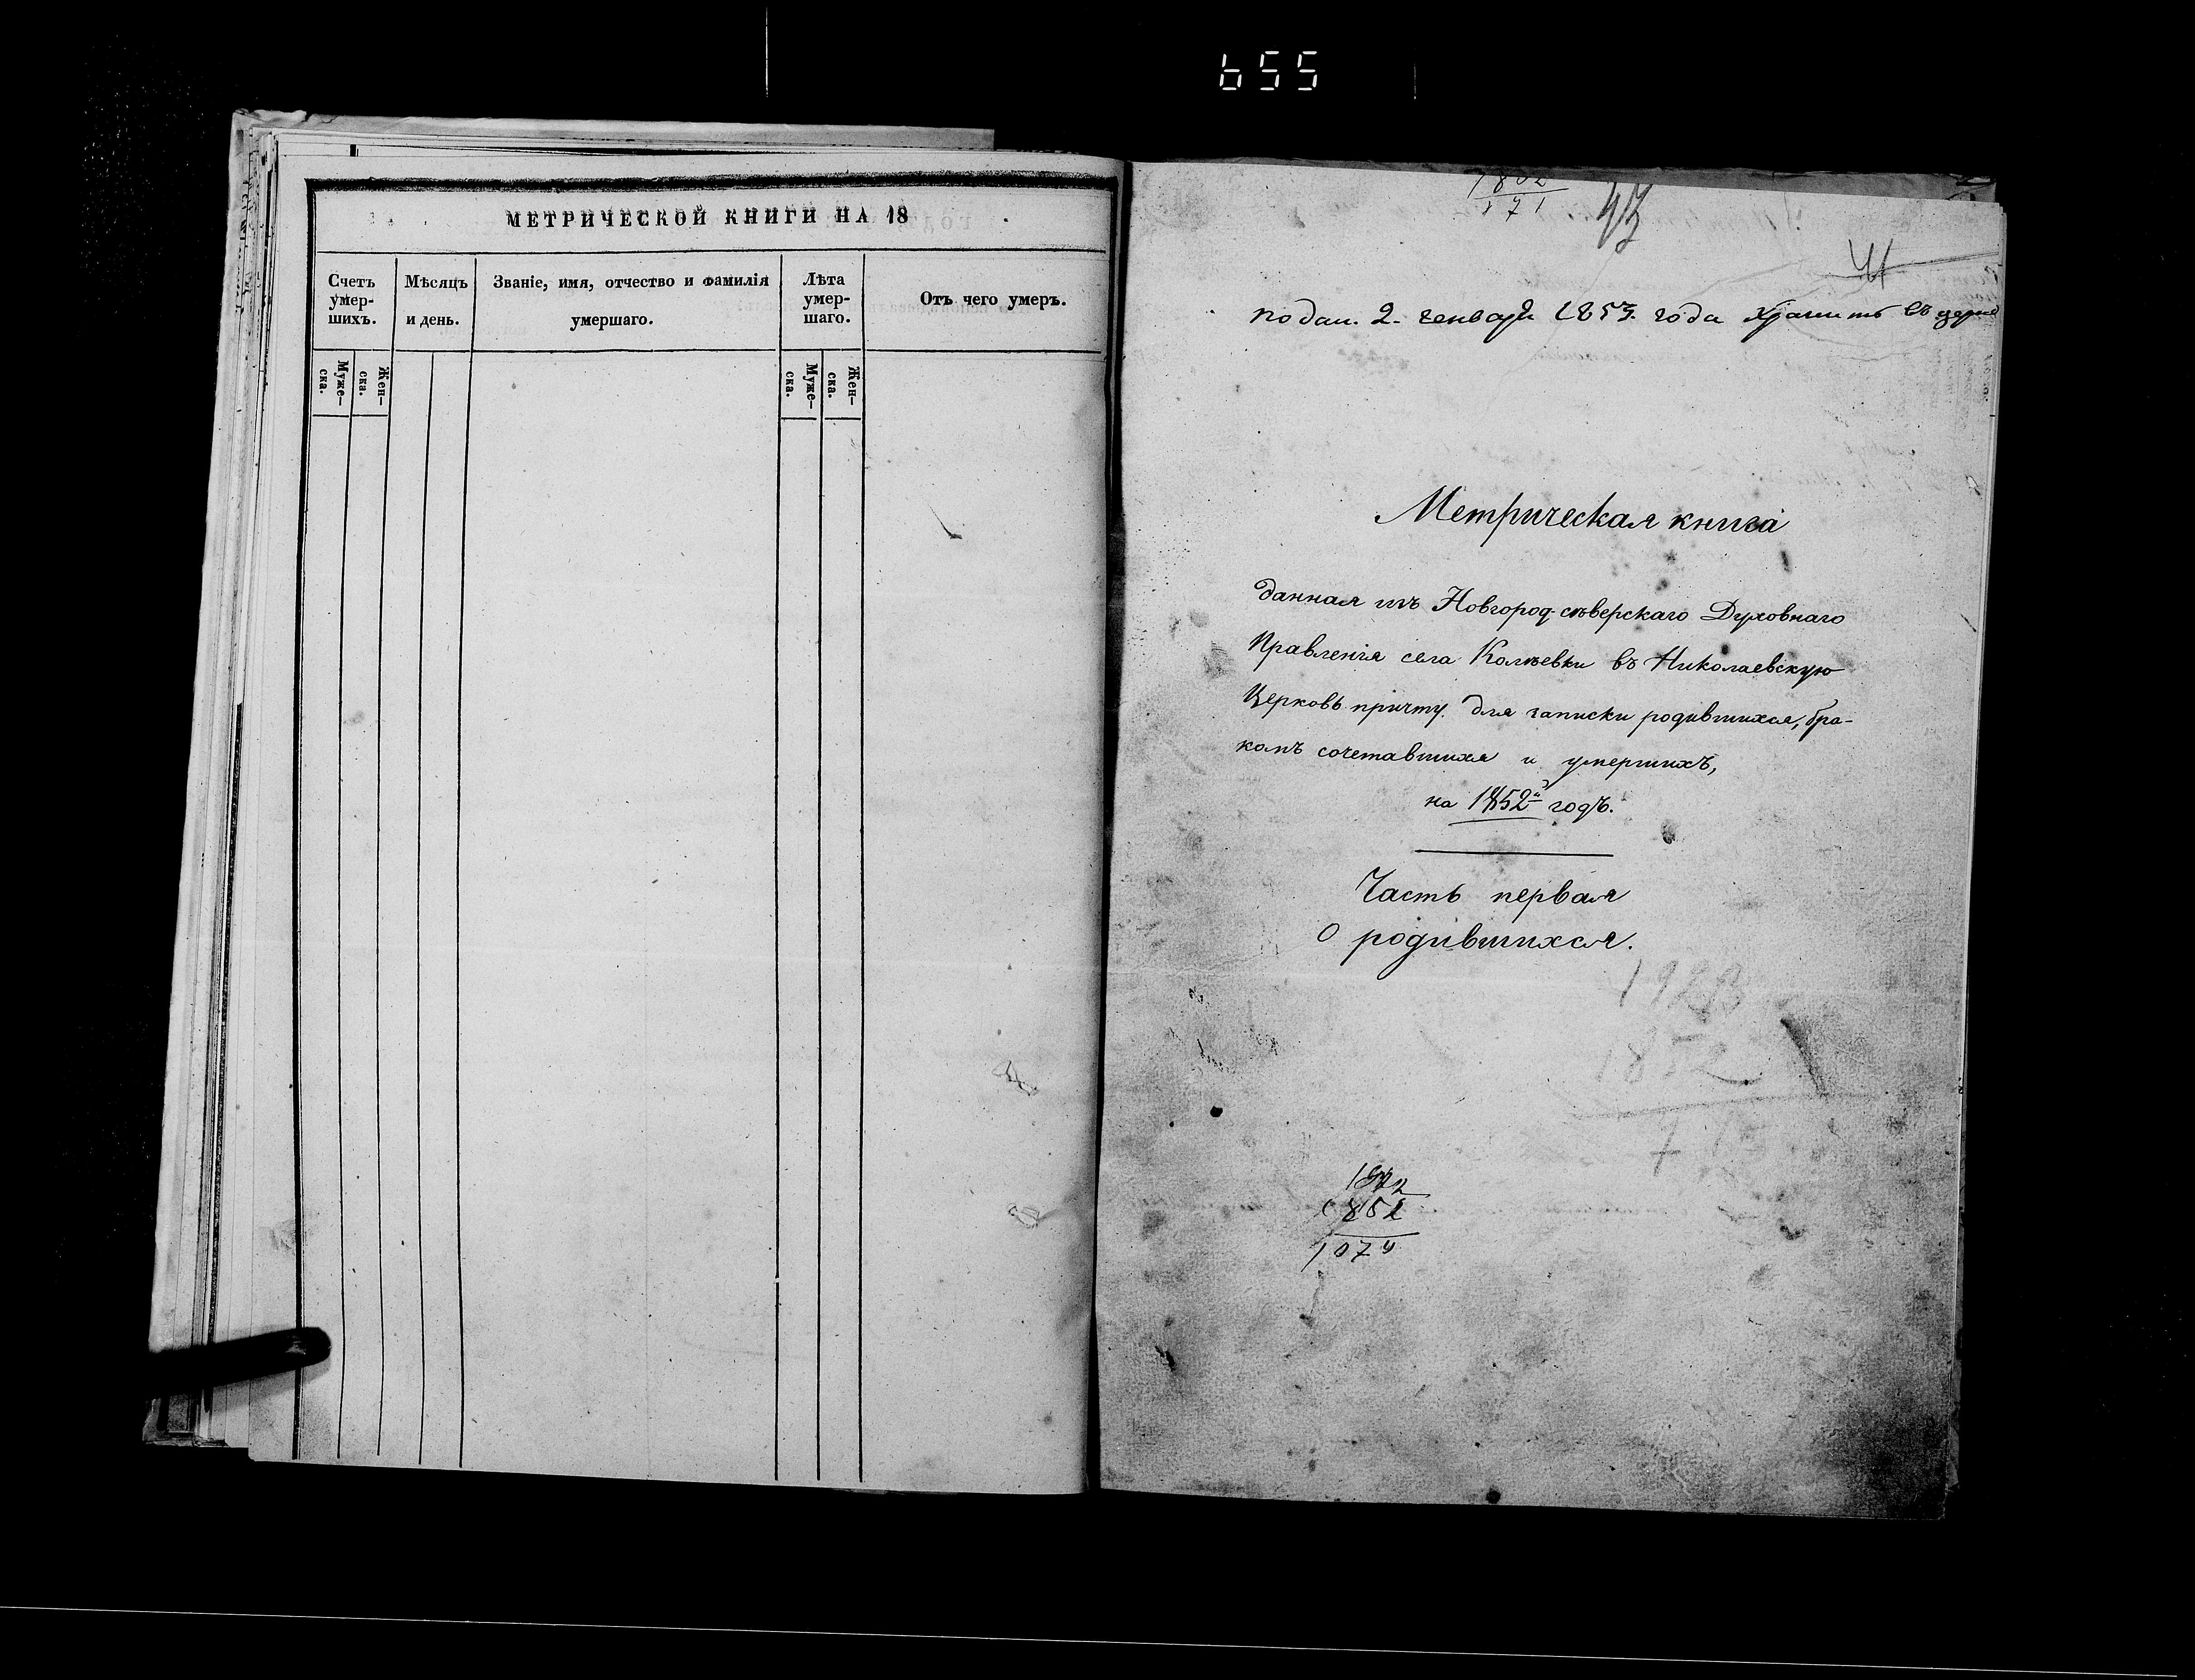 655
МЕТРИЧЕСКОЙ КНИГИ НА 18
Счетъ умер-шихъ.
Мѣсяцъ и день.
Званіе, имя, отчество и фамилія умершаго.
Лѣта умер-шаго.
Отъ чего умеръ.
Муже-ска.
Жен-ска.
Муже-ска.
Жен-ска.
1852
171
41
подан. 2. генваря 1853. года хранить въ церкв
Метрическая книга
данная изъ Новгород-сѣверскаго Духовнаго
Правленія села Колѣевки въ Николаевскую
Церковь причту для записки родившихся, бра-
комъ сочетавшихся и умершихъ,
на 1852й годъ.
Часть первая
О родившихся.
1923
1852
7
1972
852
1074